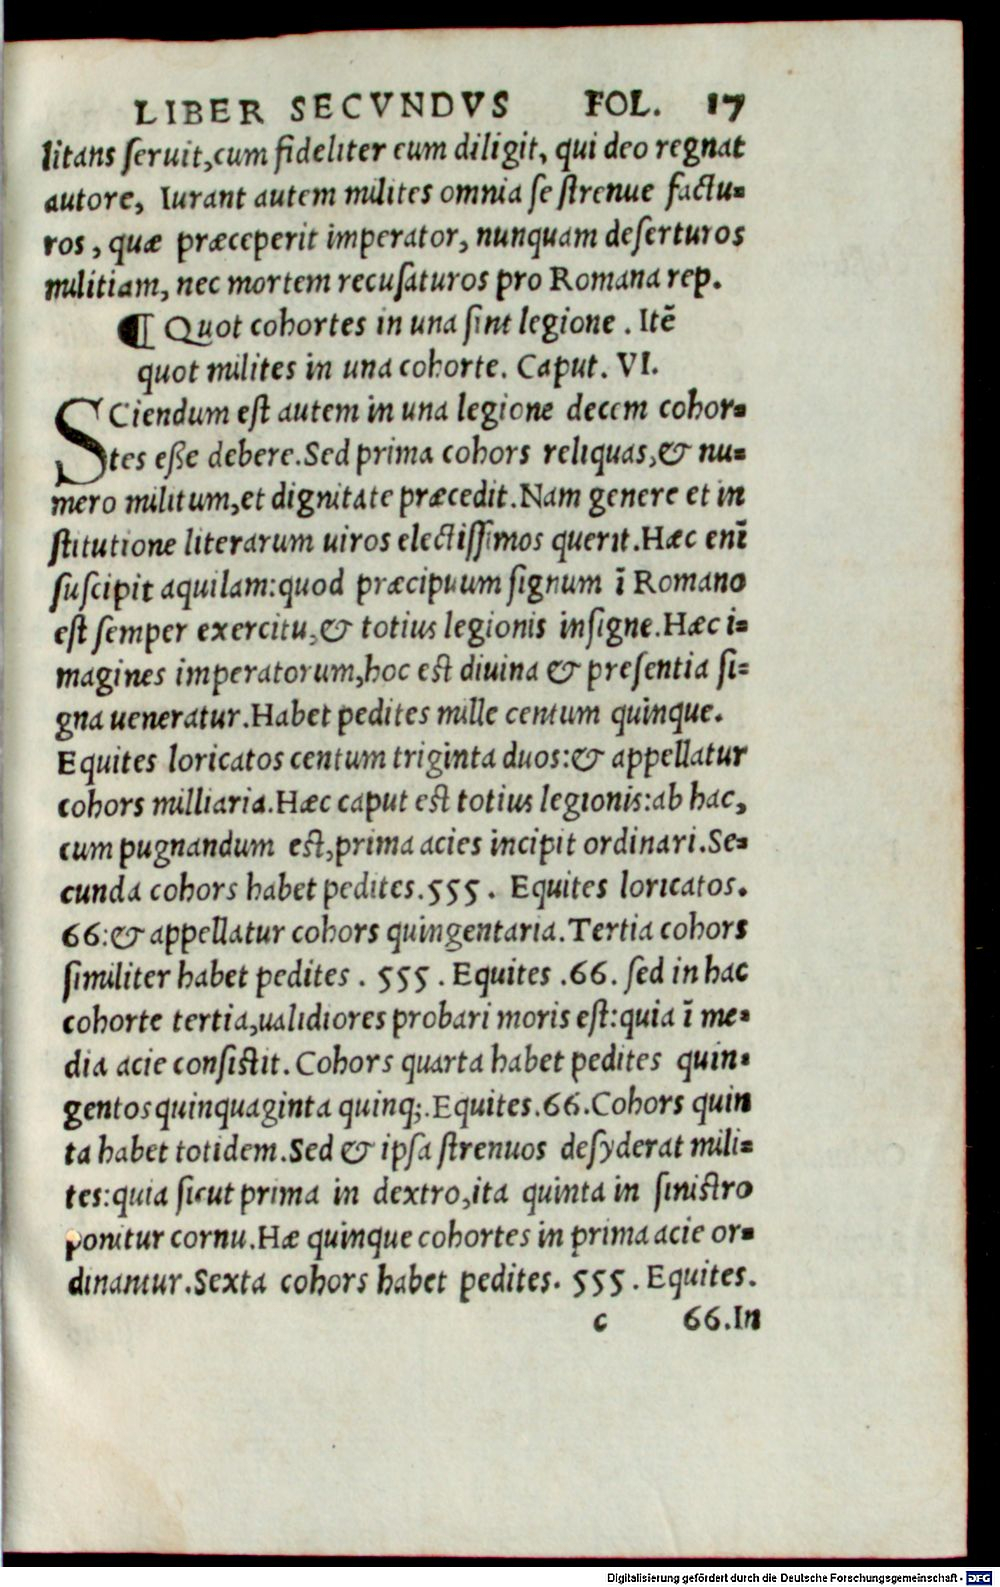 LIBER SECVNDVS FOL. 17
litans seruit,cum fideliter eum diligit, qui deo regnat
autore, Iurant autem milites omnia se strenue factu-
ros, quæ præceperit imperator, nunquam deserturos
militiam, nec mortem recusaturos pro Romana rep.
¶ Quot cohortes in una sint legione . Itẽ
quot milites in una cohorte. Caput. VI.
SCiendum est autem in una legione decem cohor-
tes eße debere.Sed prima cohors reliquas,& nu-
mero militum,et dignitate præcedit.Nam genere et in
stitutione literarum uiros electissimos querit.Hæc enĩ
suscipit aquilam:quod præcipuum signum ĩ Romano
est semper exercitu,& totius legionis insigne.Hæc i-
magines imperatorum,hoc est diuina & presentia si-
gna ueneratur.Habet pedites mille centum quinque.
Equites loricatos centum triginta duos:& appellatur
cohors milliaria.Hæc caput est totius legionis:ab hac,
cum pugnandum est,prima acies incipit ordinari.Se-
cunda cohors habet pedites.555. Equites loricatos.
66:& appellatur cohors quingentaria.Tertia cohors
similiter habet pedites . 555 . Equites .66. sed in hac
cohorte tertia,ualidiores probari moris est:quia ĩ me-
dia acie consistit. Cohors quarta habet pedites quin-
gentos quinquaginta quinq;.Equites.66.Cohors quin
ta habet totidem.Sed & ipsa strenuos desyderat mili-
tes:quia sicut prima in dextro,ita quinta in sinistro
ponitur cornu.Hæ quinque cohortes in prima acie or-
dinantur.Sexta cohors habet pedites. 555 . Equites.
c 66.In
Digitalisierung gefördert durch die Deutsche Forschungsgemeinschaft - DFG